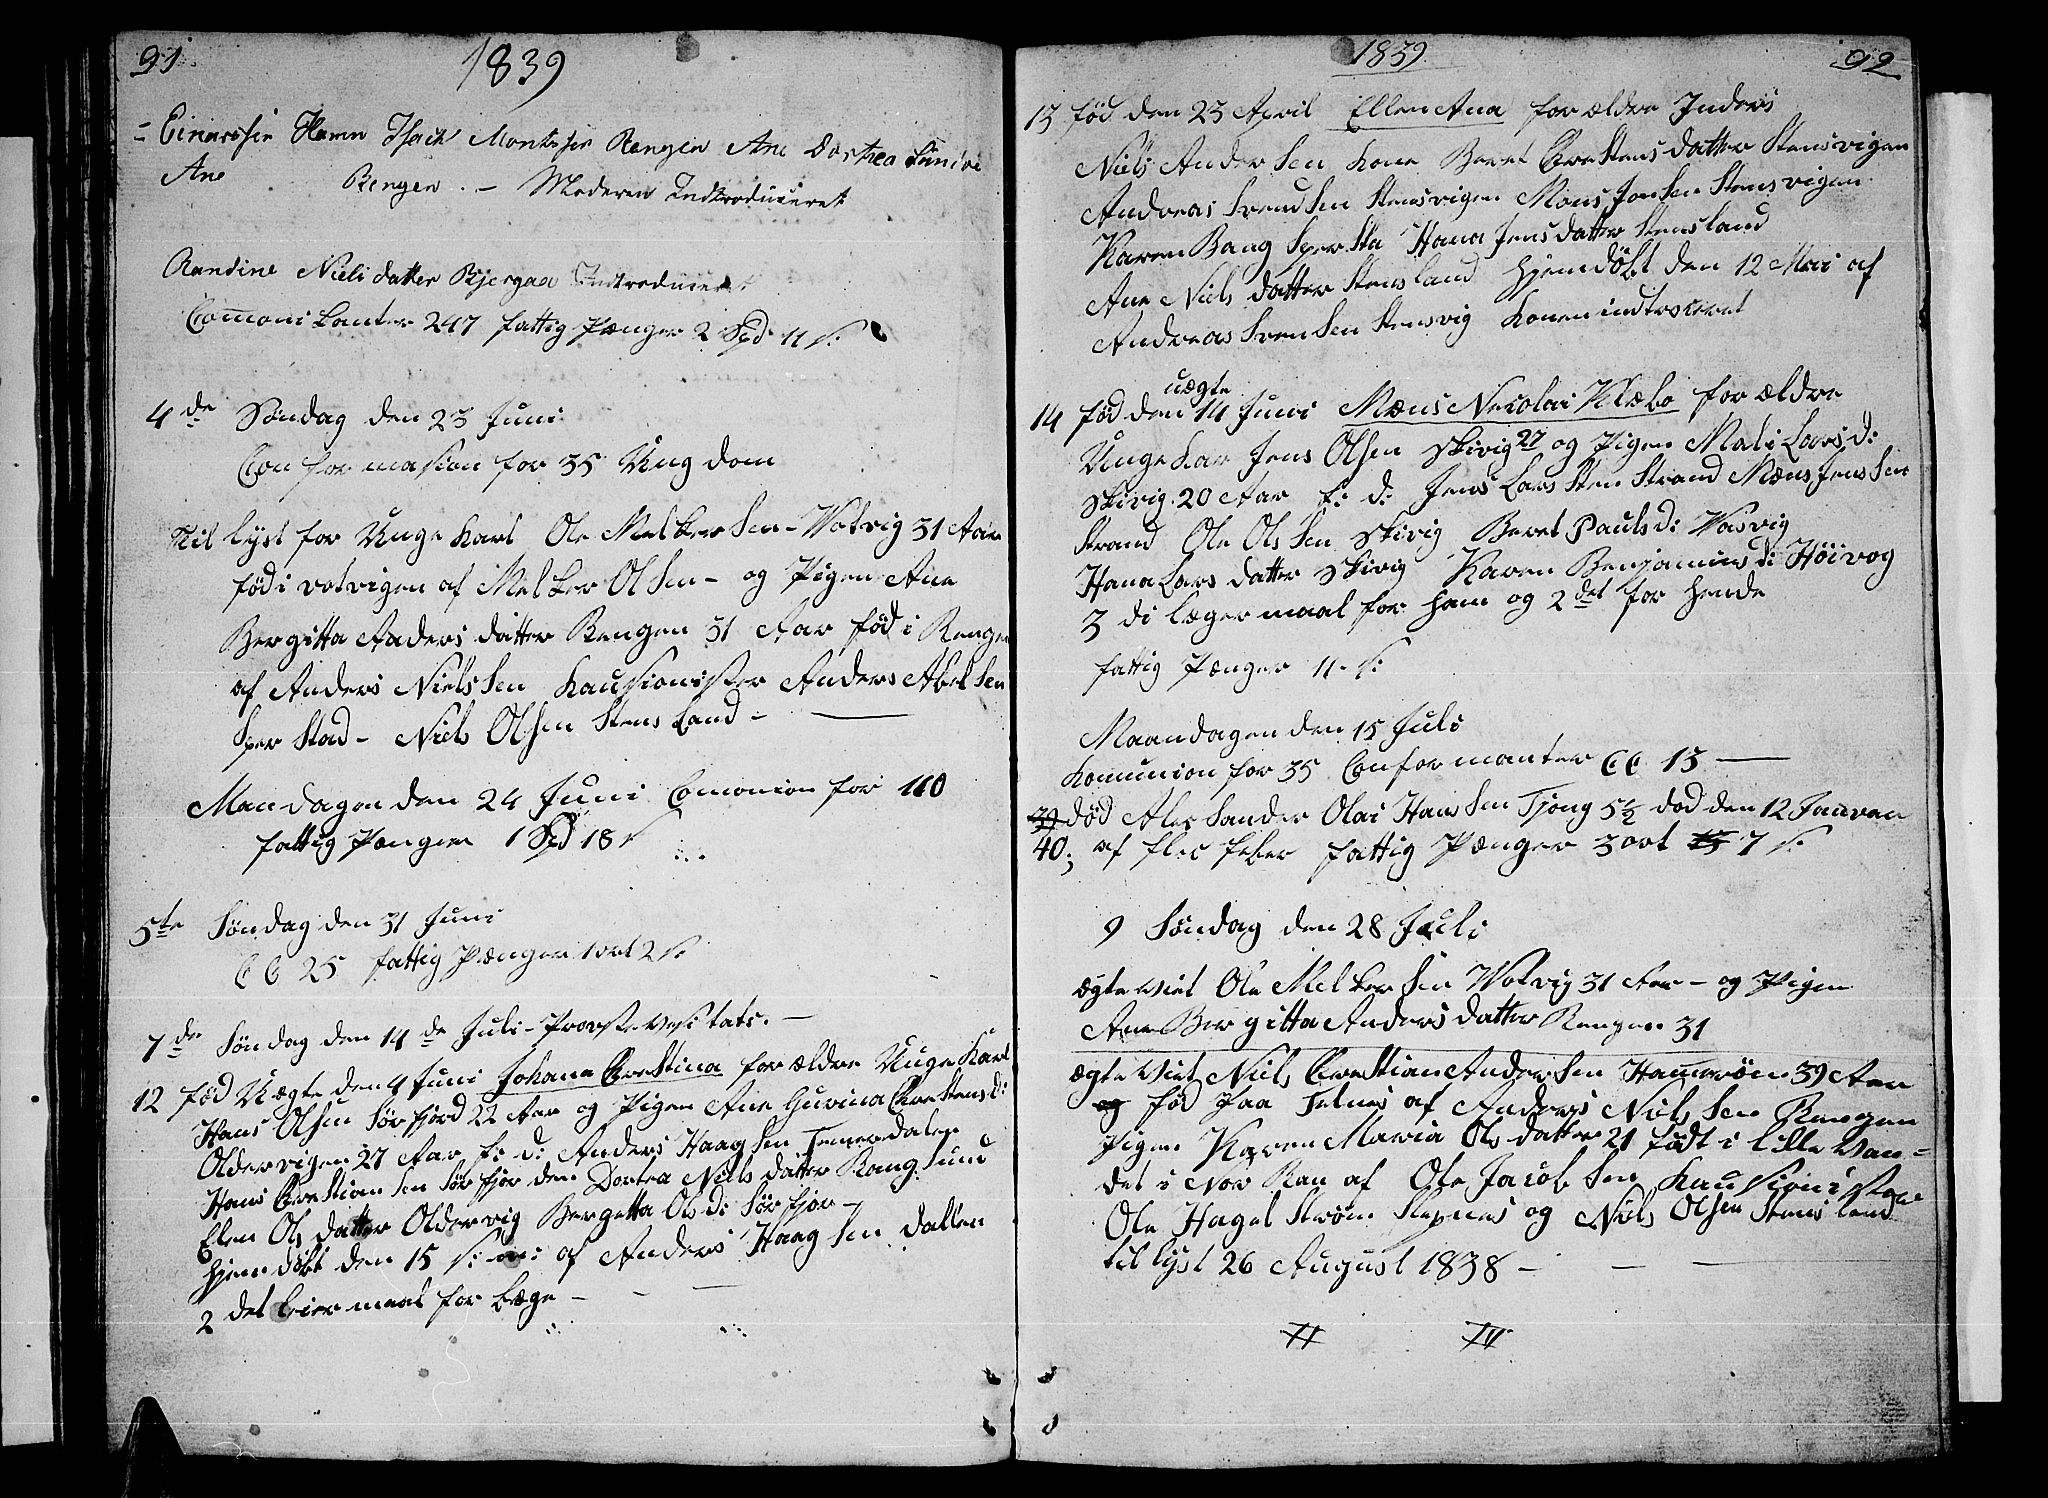 91
1839
Einarsen Hamn Isach Montssen Rengen Ane Dorthea
Ane Rengen. – Moderen Indtroduiceret
Randine Nielsdatter Bjergaa Indtroduiceret
Comoni Kanter 247 fattig Pænger 2 Spd 11 s:
4de Søndag den 23 Juni
Con for masion for 35 Ung dom
Til lyst for Unge Karl Ole Melker Sen – Votvig 31 Aar
fød i votvigen af Melker Olsen – og Pigen Ane
Bergitta Anders datter Rengen 31 Aar fød i Rengen
af Anders Nielssen Kausionister Anders Abelsen
Sper Stad – Niels Olsen Stens Land –
Mandagen den 24 Juni Comonion for 110
fattig Pænger 1 Spd 18 s
5te Søndag den 31 Juni
C C 25 fattig Pænger 1 ort 2 s.
7de Søndag den 14de Juli – Provste Visitats. –
12 fød Uægte den 4 Juni Johana Crestina for ældre Unge Karl
Hans Olsen Sørfjord 22 Aar og Pigen Ane Guvina Crestens d:
Oldervigen 27 Aar f: d: Anders Haagsen
Hans Crestian Sen Sørfjorden Dortea Niels datter Rang sund
Elen Ols datter Oldervig Bergetta Ols d: Sørfjor –
hjemdøbt den 15 s: m: af Anders Haag sen Dallen
2 det leiermaal for bæge –
1839
92
13 fød den 23 April Ellen Ana for ældre Inders
Niels Andersen Kone Beret Crestens datter Stensvigen
Andreas Svendsen Stensvigen Mons Jonsen Stensvigen
Karen Bang Spersta Hana Jensdatter Stensland
Ane Niels datter Stensland hjemdøbt den 12 Mai af
Andreas Svensen Stensvig Konen
uægte
14 fød den 14 Juni Mæns Nicolai Klæbo for ældre
Unge Kar Jens Olsen Skivig 27 og Pigen Mali Lars d:
Skivig 20 Aar f: d: Jens Lars Sten Strand Mæns Jenssen
Strand Ole Olssen Skivig Beret Pauls d: Vasvig
Hana Lars datter Skivig Karen Benjamins d: Høivog
3 di lægermaal for ham og 2 det for hende
fattig Pænger 11 s:
Maandagen den 15 Juli
Komunion for 35 Conformanter C C 13 —
39 død Alexsander Olai Hanssen Tjong 5½ død den 12 Januari
40; af feber fattig Pænger 3 ort 13 7 s.
9 Søndag den 28 Juli
ægte viet Ole Melkersen Votvig 31 Aar – og Pigen
Ane Bergitta Anders datter Rengen 31
ægte Viet Niels Crestian Andersen Hamerøn 39 Aar
og fød Paa Telnes af Anders Nielssen Rengen
Pigen Karen Maria Ols datter 21 født i Lille Van=
det i Nor Ran af Ole Jacob Sen Kausionister
Ole Hagel Strøm og Niels Olsen Stensland
til lyst 26 August 1838 –